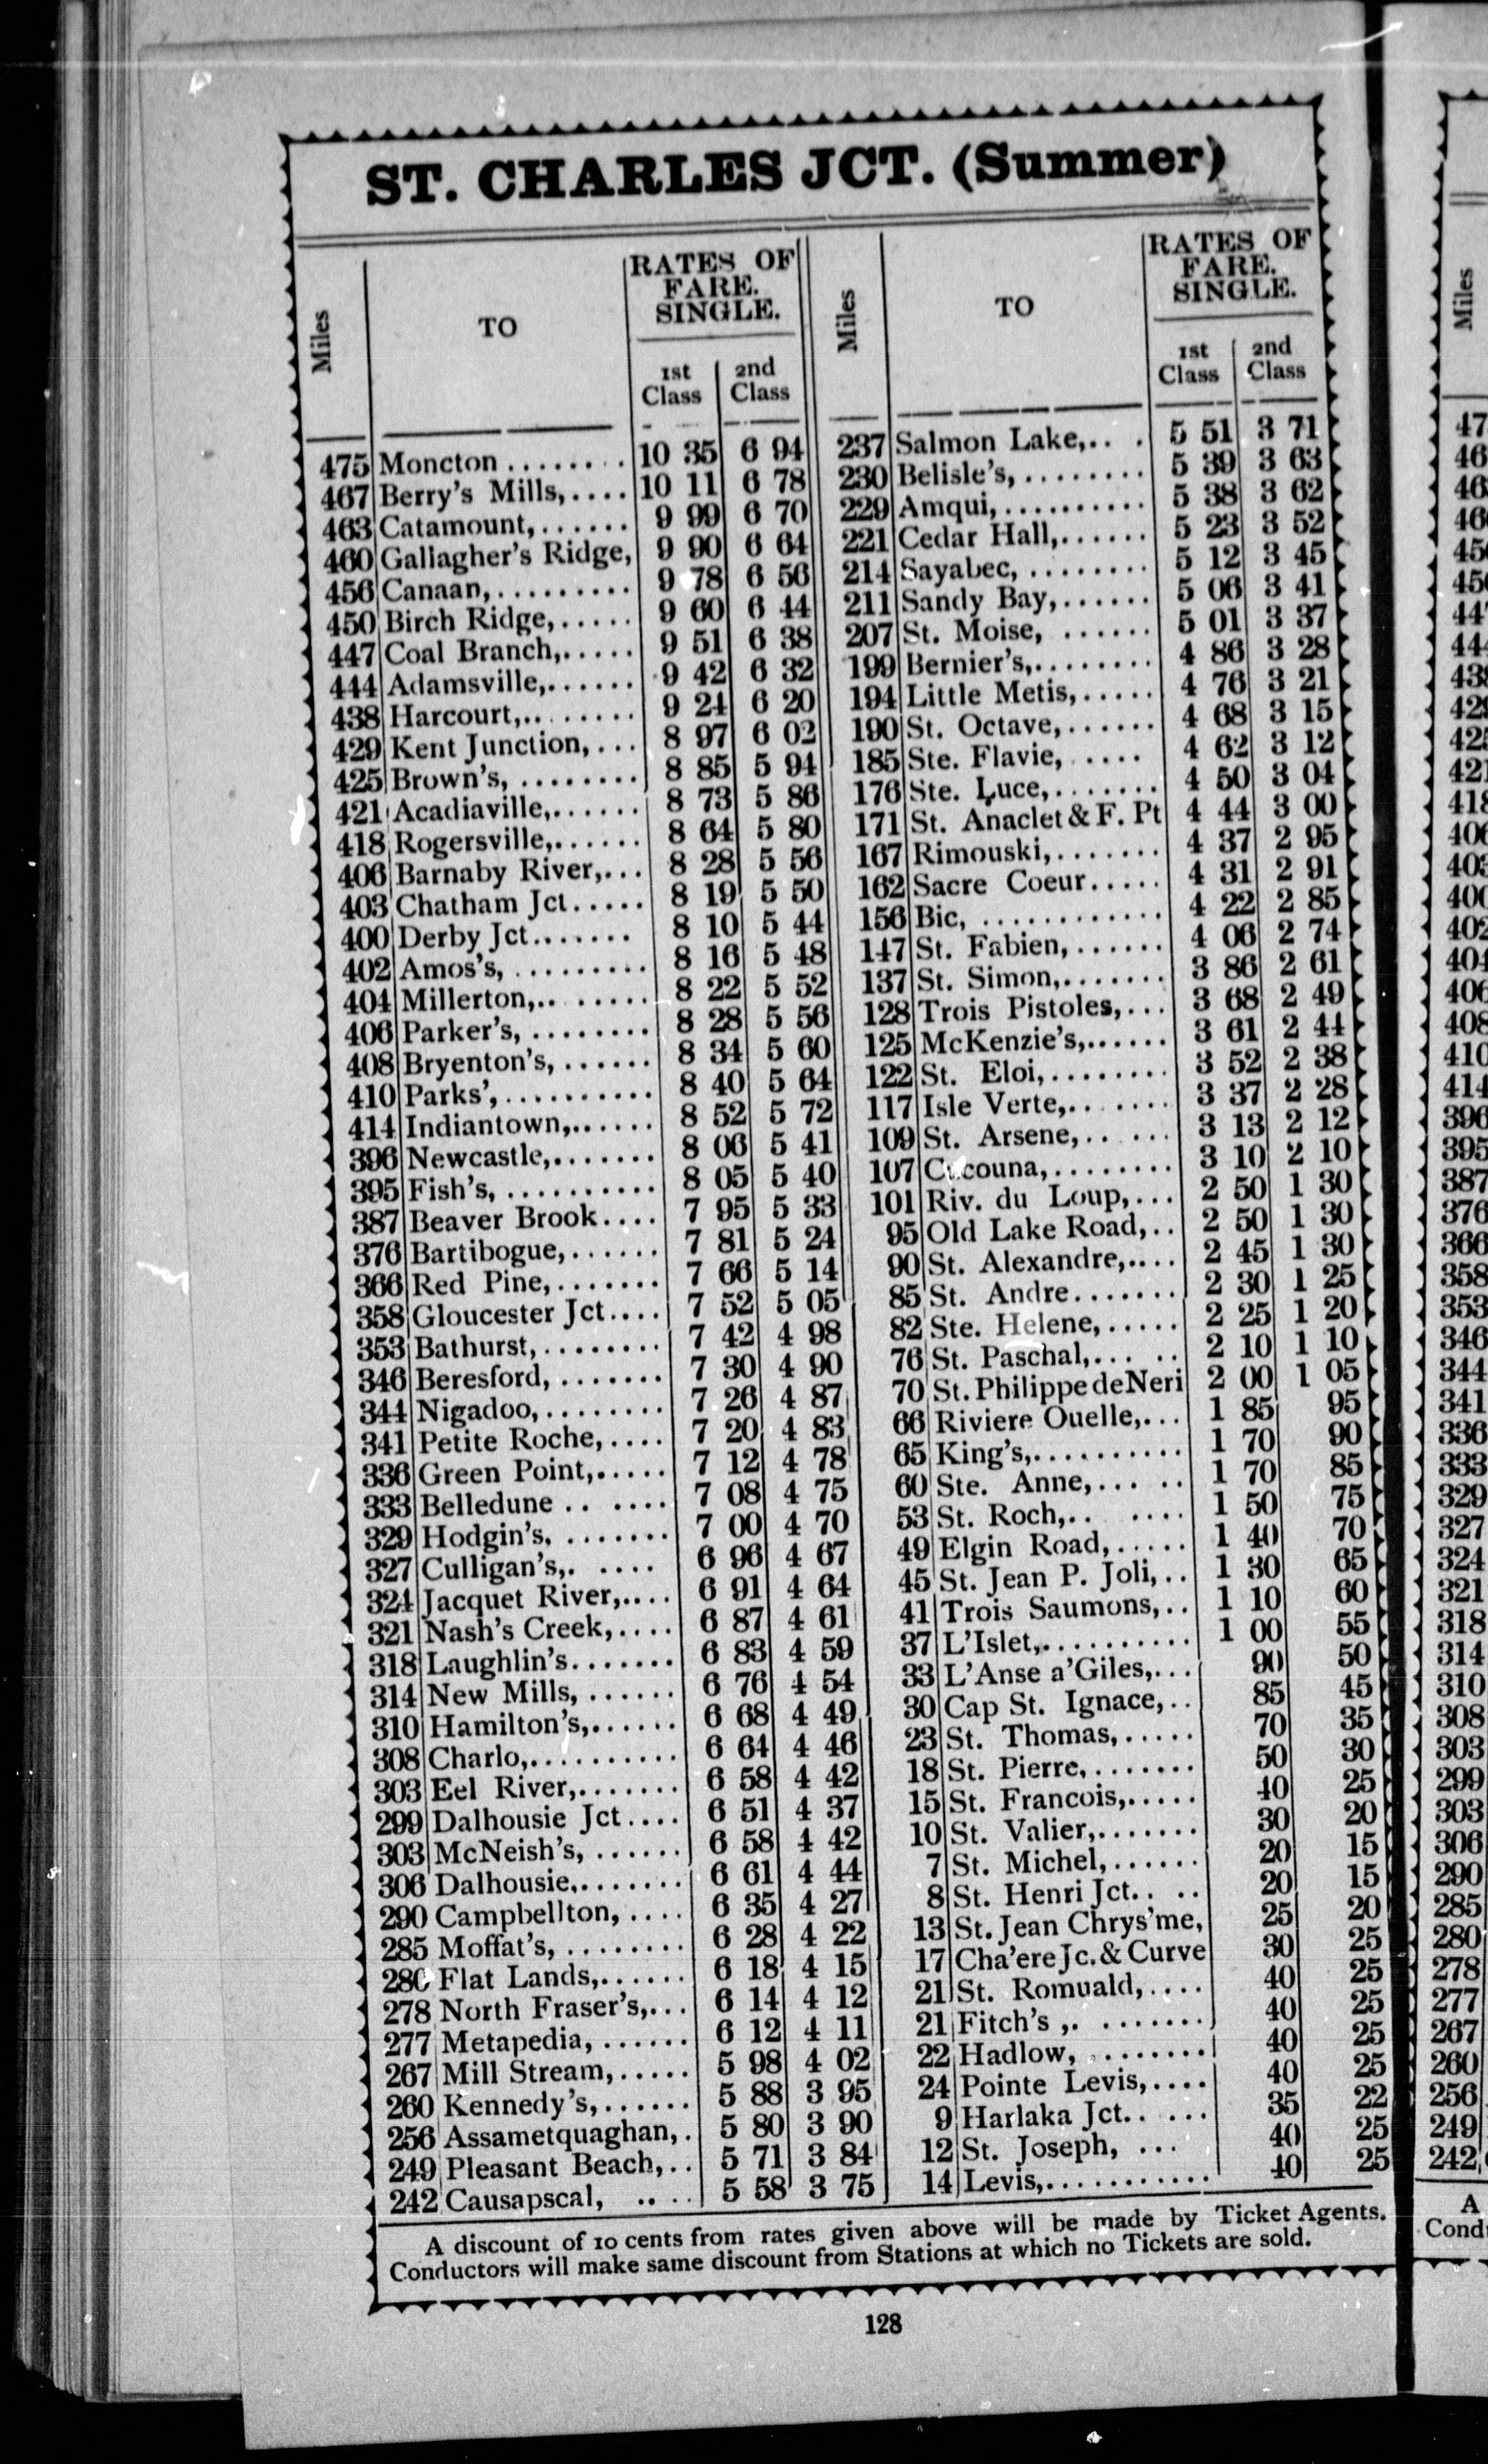 ST. CHARLES JCT. (Summer)
Miles
TO
RATES OF
FARE.
SINGLE.
1st Class
2nd Class
475 Moncton ........ 10 35 6 94
467 Berry's Mills,.... 10 11 6 78
463 Catamount,...... 9 99 6 70
460 Gallagher's Ridge, 9 90 6 64
456 Canaan,......... 9 78 6 56
450 Birch Ridge,..... 9 60 6 44
447 Coal Branch,..... 9 51 6 38
444 Adamsville,...... 9 42 6 32
438 Harcourt,........ 9 24 6 20
429 Kent Junction,... 8 97 6 02
425 Brown's, ........ 8 85 5 94
421 Acadiaville,...... 8 73 5 86
418 Rogersville,...... 8 64 5 80
406 Barnaby River,... 8 28 5 56
403 Chatham Jct..... 8 19 5 50
400 Derby Jct....... 8 10 5 44
402 Amos's, ......... 8 16 5 48
404 Millerton,........ 8 22 5 52
406 Parker's, ......... 8 28 5 56
408 Bryenton's, ...... 8 34 5 60
410 Parks',.......... 8 40 5 64
414 Indiantown,...... 8 52 5 72
396 Newcastle,....... 8 06 5 41
395 Fish's, .......... 8 05 5 40
387 Beaver Brook.... 7 95 5 33
376 Bartibogue,...... 7 81 5 24
366 Red Pine,........ 7 66 5 14
358 Gloucester Jct.... 7 52 5 05
353 Bathurst,........ 7 42 4 98
346 Beresford, ....... 7 30 4 90
344 Nigadoo,........ 7 26 4 87
341 Petite Roche,.... 7 20 4 83
336 Green Point,..... 7 12 4 78
333 Belledune .. .... 7 08 4 75
329 Hodgin's, ....... 7 00 4 70
327 Culligan's,. .... 6 96 4 67
324 Jacquet River,.... 6 91 4 64
321 Nash's Creek,.... 6 87 4 61
318 Laughlin's....... 6 83 4 59
314 New Mills, ...... 6 76 4 54
310 Hamilton's,...... 6 68 4 49
308 Charlo,.......... 6 64 4 46
303 Eel River,....... 6 58 4 42
299 Dalhousie Jct.... 6 51 4 37
303 McNeish's, ...... 6 58 4 42
306 Dalhousie........ 6 61 4 44
290 Campbellton, .... 6 35 4 27
285 Moffat's, ........ 6 28 4 22
280 Flat Lands,...... 6 18 4 15
278 North Fraser's,... 6 14 4 12
277 Metapedia, ....... 6 12 4 11
267 Mill Stream,..... 5 98 4 02
260 Kennedy's,...... 5 88 3 95
256 Assametquaghan,. 5 80 3 90
249 Pleasant Beach,.. 5 71 3 84
242 Causapscal, .... 5 58 3 75
Miles
TO
RATES OF
FARE.
SINGLE.
1st Class
2nd Class
237 Salmon Lake,.. . 5 51 3 71
230 Belisle's, ......... 5 39 3 63
229 Amqui,.......... 5 38 3 62
221 Cedar Hall,...... 5 23 3 52
214 Sayabec, ........ 5 12 3 45
211 Sandy Bay,...... 5 06 3 41
207 St. Moise, ...... 5 01 3 37
199 Bernier's,........ 4 86 3 28
194 Little Metis,..... 4 76 3 21
190 St. Octave,...... 4 68 3 15
185 Ste. Flavie, ..... 4 62 3 12
176 Ste. Luce,....... 4 50 3 04
171 St. Anaclet & F. Pt 4 44 3 00
167 Rimouski,....... 4 37 2 95
162 Sacre Coeur..... 4 31 2 91
156 Bic, ............ 4 22 2 85
147 St. Fabien,...... 4 06 2 74
137 St. Simon,....... 3 86 2 61
128 Trois Pistoles,... 3 68 2 49
125 McKenzie's,...... 3 61 2 44
122 St. Eloi,........ 3 52 2 38
117 Isle Verte,....... 3 37 2 28
109 St. Arsene,...... 3 13 2 12
107 Cacouna,........ 3 10 2 10
101 Riv. du Loup,... 2 50 1 30
95 Old Lake Road,.. 2 50 1 30
90 St. Alexandre,.... 2 45 1 30
85 St. Andre....... 2 30 1 25
82 Ste. Helene,..... 2 25 1 20
76 St. Paschal,... .. 2 10 1 10
70 St. Philippe de Neri 2 00 1 05
66 Riviere Ouelle,... 1 85 95
65 King's,.......... 1 70 90
60 Ste. Anne,... .. 1 70 85
53 St. Roch,.. .... 1 50 75
49 Elgin Road,..... 1 40 70
45 St. Jean P. Joli,.. 1 30 65
41 Trois Saumons,.. 1 10 60
37 L'Islet,.......... 1 00 55
33 L'Anse a'Giles,... 90 50
30 Cap St. Ignace,.. 85 45
23 St. Thomas,..... 70 35
18 St. Pierre,....... 50 30
15 St. Francois,..... 40 25
10 St. Valier,....... 30 20
7 St. Michel,...... 20 15
8 St. Henri Jct.. .. 20 15
13 St. Jean Chrys'me, 25 20
17 Cha'ere Jc. & Curve 30 25
21 St. Romuald,.... 40 25
21 Fitch's ,. ....... 40 25
22 Hadlow, ........ 40 25
24 Pointe Levis,.... 40 25
9 Harlaka Jct.. ... 35 22
12 St. Joseph, ... 40 25
14 Levis,........... 40 25
A discount of 10 cents from rates given above will be made by Ticket Agents.
Conductors will make same discount from Stations at which no Tickets are sold.
128